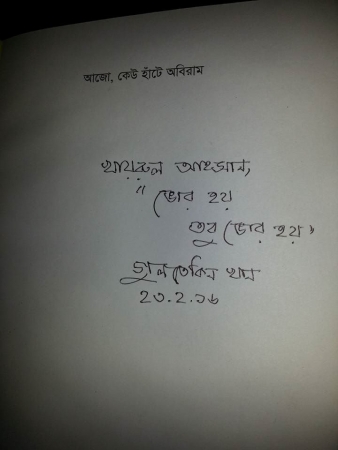 আজো, কেউ হাঁটে অবিরাম
খায়রুল আহসান,
"ভোর হয়
তবু ভোর হয়"
জুলতেকিন খান
২৩.২.১৬